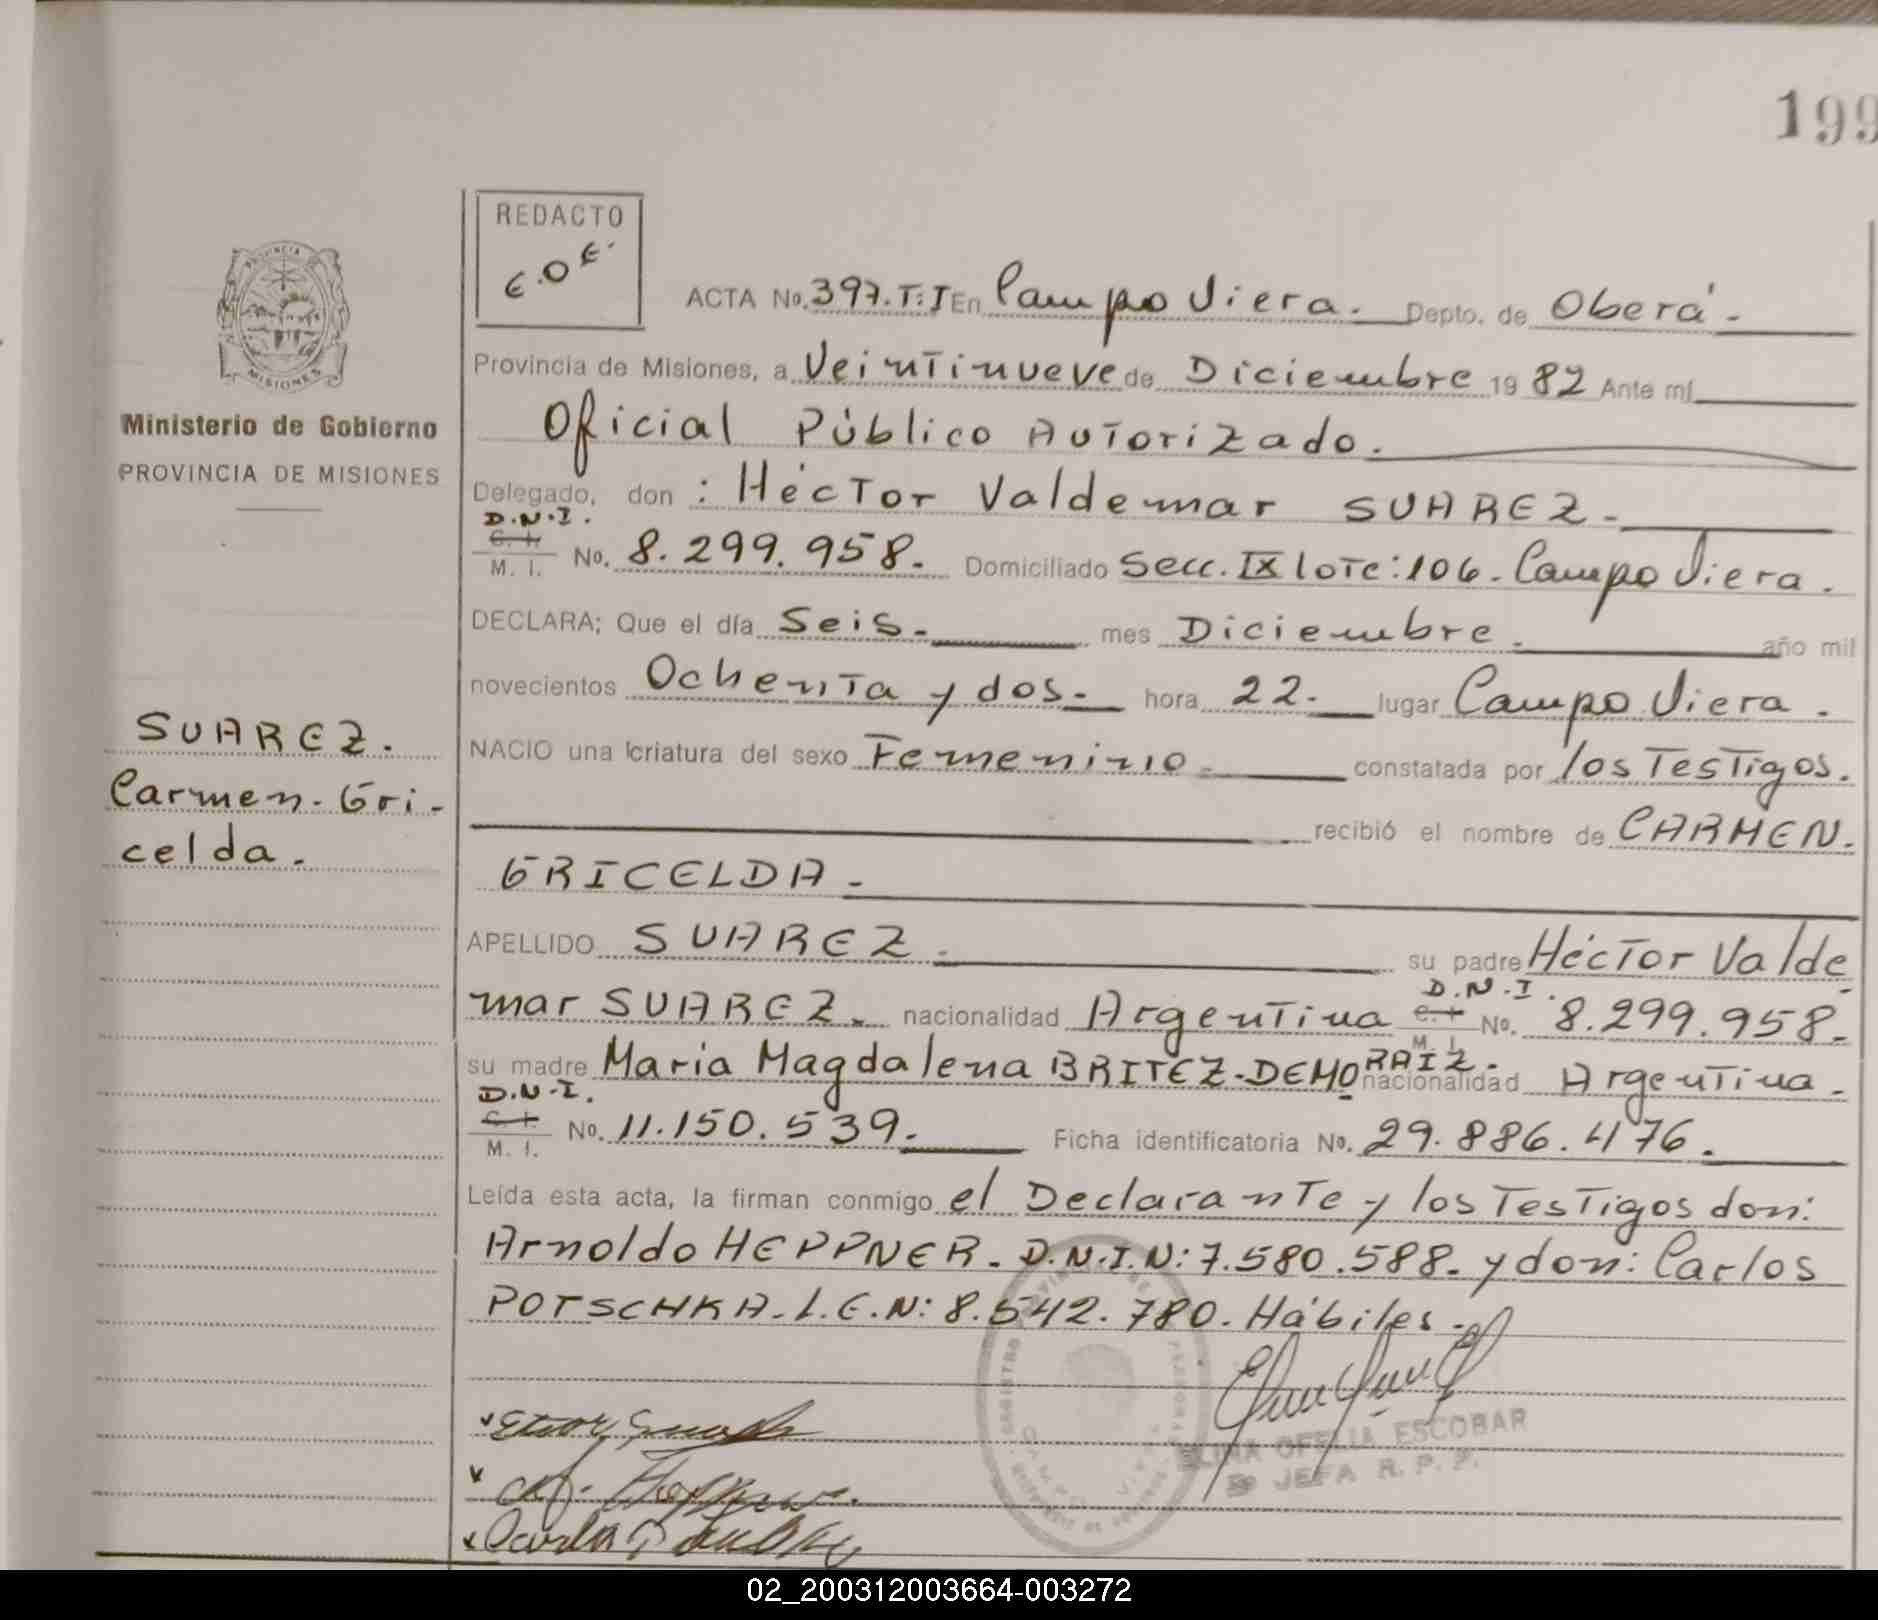 199
REDACTO
E.O.E.
PROVINCIA
MISIONES
Ministerio de Gobierno
PROVINCIA DE MISIONES
ACTA No. 397. T: I En Campo Viera. Depto. de Oberá.
Provincia de Misiones, a Veintinueve de Diciembre 19 82 Ante mí
Oficial Público Autorizado.
Delegado, don : Héctor Valdemar SUAREZ.
D.N.I.
C. I.
M. I. No. 8.299.958. Domiciliado Secc. IX lote: 106. Campo Viera.
DECLARA; Que el día Seis. mes Diciembre. año mil
novecientos Ochenta y dos. hora 22. lugar Campo Viera.
NACIO una criatura del sexo Femenino. constatada por los Testigos.
recibió el nombre de CARMEN.
GRICELDA.
SUAREZ.
Carmen. Gri-
celda.
APELLIDO SUAREZ. su padre Héctor Valde
D.N.I.
mar SUAREZ. nacionalidad Argentina C. I. M. I. No. 8.299.958.
su madre Maria Magdalena BRITEZ. DEMORAIZ. nacionalidad Argentina.
D.N.I.
C. I.
M. I. No. 11.150.539. Ficha identificatoria No. 29.886.476.
Leída esta acta, la firman conmigo el Declarante y los Testigos don:
Arnoldo HEPPNER. D.N.I. N: 7.580.588. y don: Carlos
POTSCHKA. L.E. N: 8.542.780. Hábiles.
OFELIA ESCOBAR
JEFA R. P. P.
02_200312003664-003272